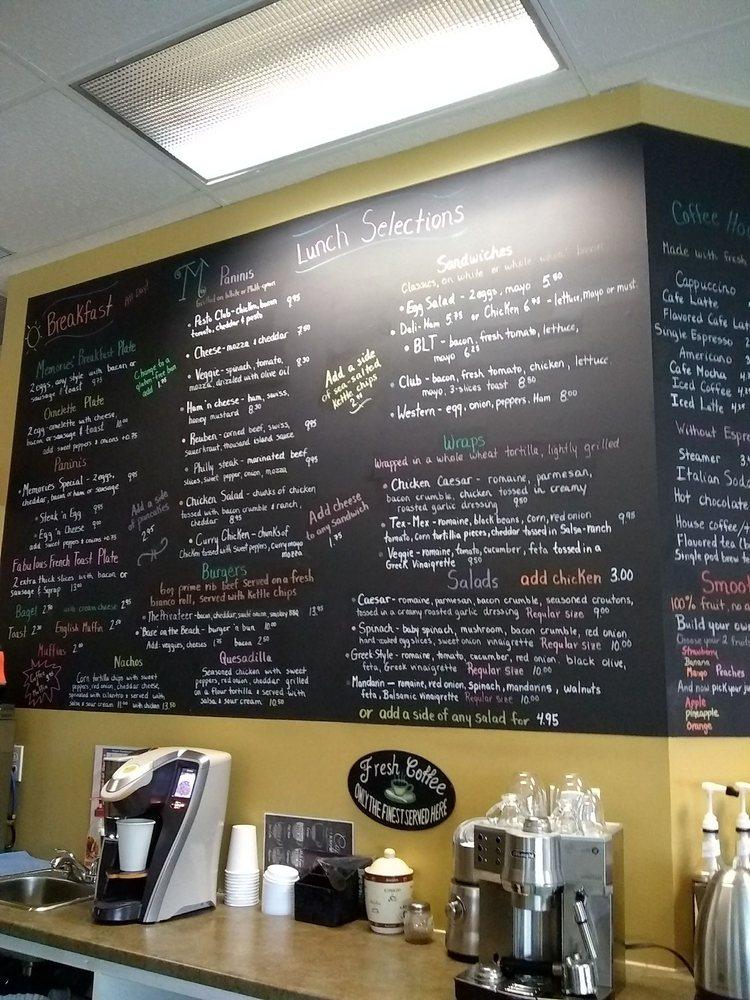 Lunch Selections
Breakfast
All Day!
Memories' Breakfast Plate
2 eggs any style with bacon or
sausage & toast 9.75
Change to a
gluten-free bun
add 1.95
Omelette Plate
2 egg omelette with cheese,
bacon or sausage & toast 10.00
add sweet peppers & onions +0.75
Paninis
• Memories Special - 2 eggs,
cheddar, bacon or ham or sausage 9.95
• Steak 'n Egg 9.95
• Egg 'n Cheese 9.00
add sweet peppers & onions +0.75
Add a side
of pancakes
2.95
Fabulous French Toast Plate
2 extra thick slices with bacon or
sausage & syrup 13.00
Bagel 2.50 with cream cheese 2.95
Toast 2.00 English Muffin 2.50
Muffins
Coffee
& Muffin
Paninis
Grilled on White or Multi-grain
• Pesto Club - chicken, bacon
tomato, cheddar & pesto 9.95
• Cheese - mozza & cheddar 7.50
• Veggie - spinach, tomato,
mozza, drizzled with olive oil 8.30
• Ham 'n cheese - ham, swiss,
honey mustard 8.30
• Reuben - corned beef, swiss,
sauerkraut, thousand island sauce 9.95
• Philly steak - marinated beef
slices, sweet pepper, onion, mozza 9.95
• Chicken Salad - chunks of chicken
tossed with bacon crumble & ranch,
cheddar 8.95
• Curry Chicken - chunks of
Chicken tossed with sweet peppers, curry mayo
mozza
Add a side
of sea-salted
kettle chips
Add cheese
to any sandwich
1.75
Burgers
6oz prime rib beef served on a fresh
bianco roll, served with Kettle chips
• The Privateer - bacon, cheddar, sauté onion, smokey BBQ 13.95
• Base on the Beach - burger 'n bun 10.00
Add: veggies, cheeses 1.75 bacon 2.50
Nachos
Corn tortilla chips with sweet
peppers, red onion, cheddar cheese,
sprinkled with cilantro & served with
salsa & sour cream 11.00 with chicken 13.50
Quesadilla
Seasoned chicken with sweet
peppers, red onion, cheddar grilled
on a flour tortilla & served with
salsa & sour cream. 10.50
Sandwiches
Classics, on white or whole wheat
• Egg Salad - 2 eggs, mayo 5.50
• Deli-Ham 5.75 or Chicken 6.95 - lettuce, mayo or must.
• BLT - bacon, fresh tomato, lettuce,
mayo 6.25
• Club - bacon, fresh tomato, chicken, lettuce
mayo, 3-slices toast 8.50
• Western - egg, onion, peppers, Ham 8.00
Wraps
Wrapped in a whole wheat tortilla, lightly grilled
• Chicken Caesar - romaine, parmesan,
bacon crumble, chicken tossed in creamy
roasted garlic dressing 9.50
• Tex-Mex - romaine, black beans, corn, red onion
tomato, corn tortilla pieces, cheddar tossed in Salsa-ranch 9.95
• Veggie - romaine, tomato, cucumber, feta tossed in a
Greek Vinaigrette 9.50
Salads add chicken 3.00
• Caesar - romaine, parmesan, bacon crumble, seasoned croutons,
tossed in a creamy roasted garlic dressing Regular size 9.00
• Spinach - baby spinach, mushroom, bacon crumble, red onion
hard-cooked egg slices, sweet onion vinaigrette Regular size 10.00
• Greek Style - romaine, tomato, cucumber, red onion, black olive,
feta, Greek vinaigrette Regular size 10.00
• Mandarin - romaine, red onion, Spinach, mandarins, walnuts
feta, Balsamic vinaigrette Regular size 10.00
or add a side of any salad for 4.95
Coffee
Made with fresh
Cappuccino
Cafe Latte
Flavored Cafe
Single Espresso
Americano
Cafe Mocha
Iced Coffee
Iced Latte
Without
Steamer
Italian
Hot chocolate
House coffee
Flavored tea
Single pod brew
100% fruit, no
Build your own
Choose your 2 fruits
Strawberry
Banana
Mango Peaches
And now pick your
Apple
pineapple
Orange
Fresh Coffee
ONLY THE FINEST SERVED HERE